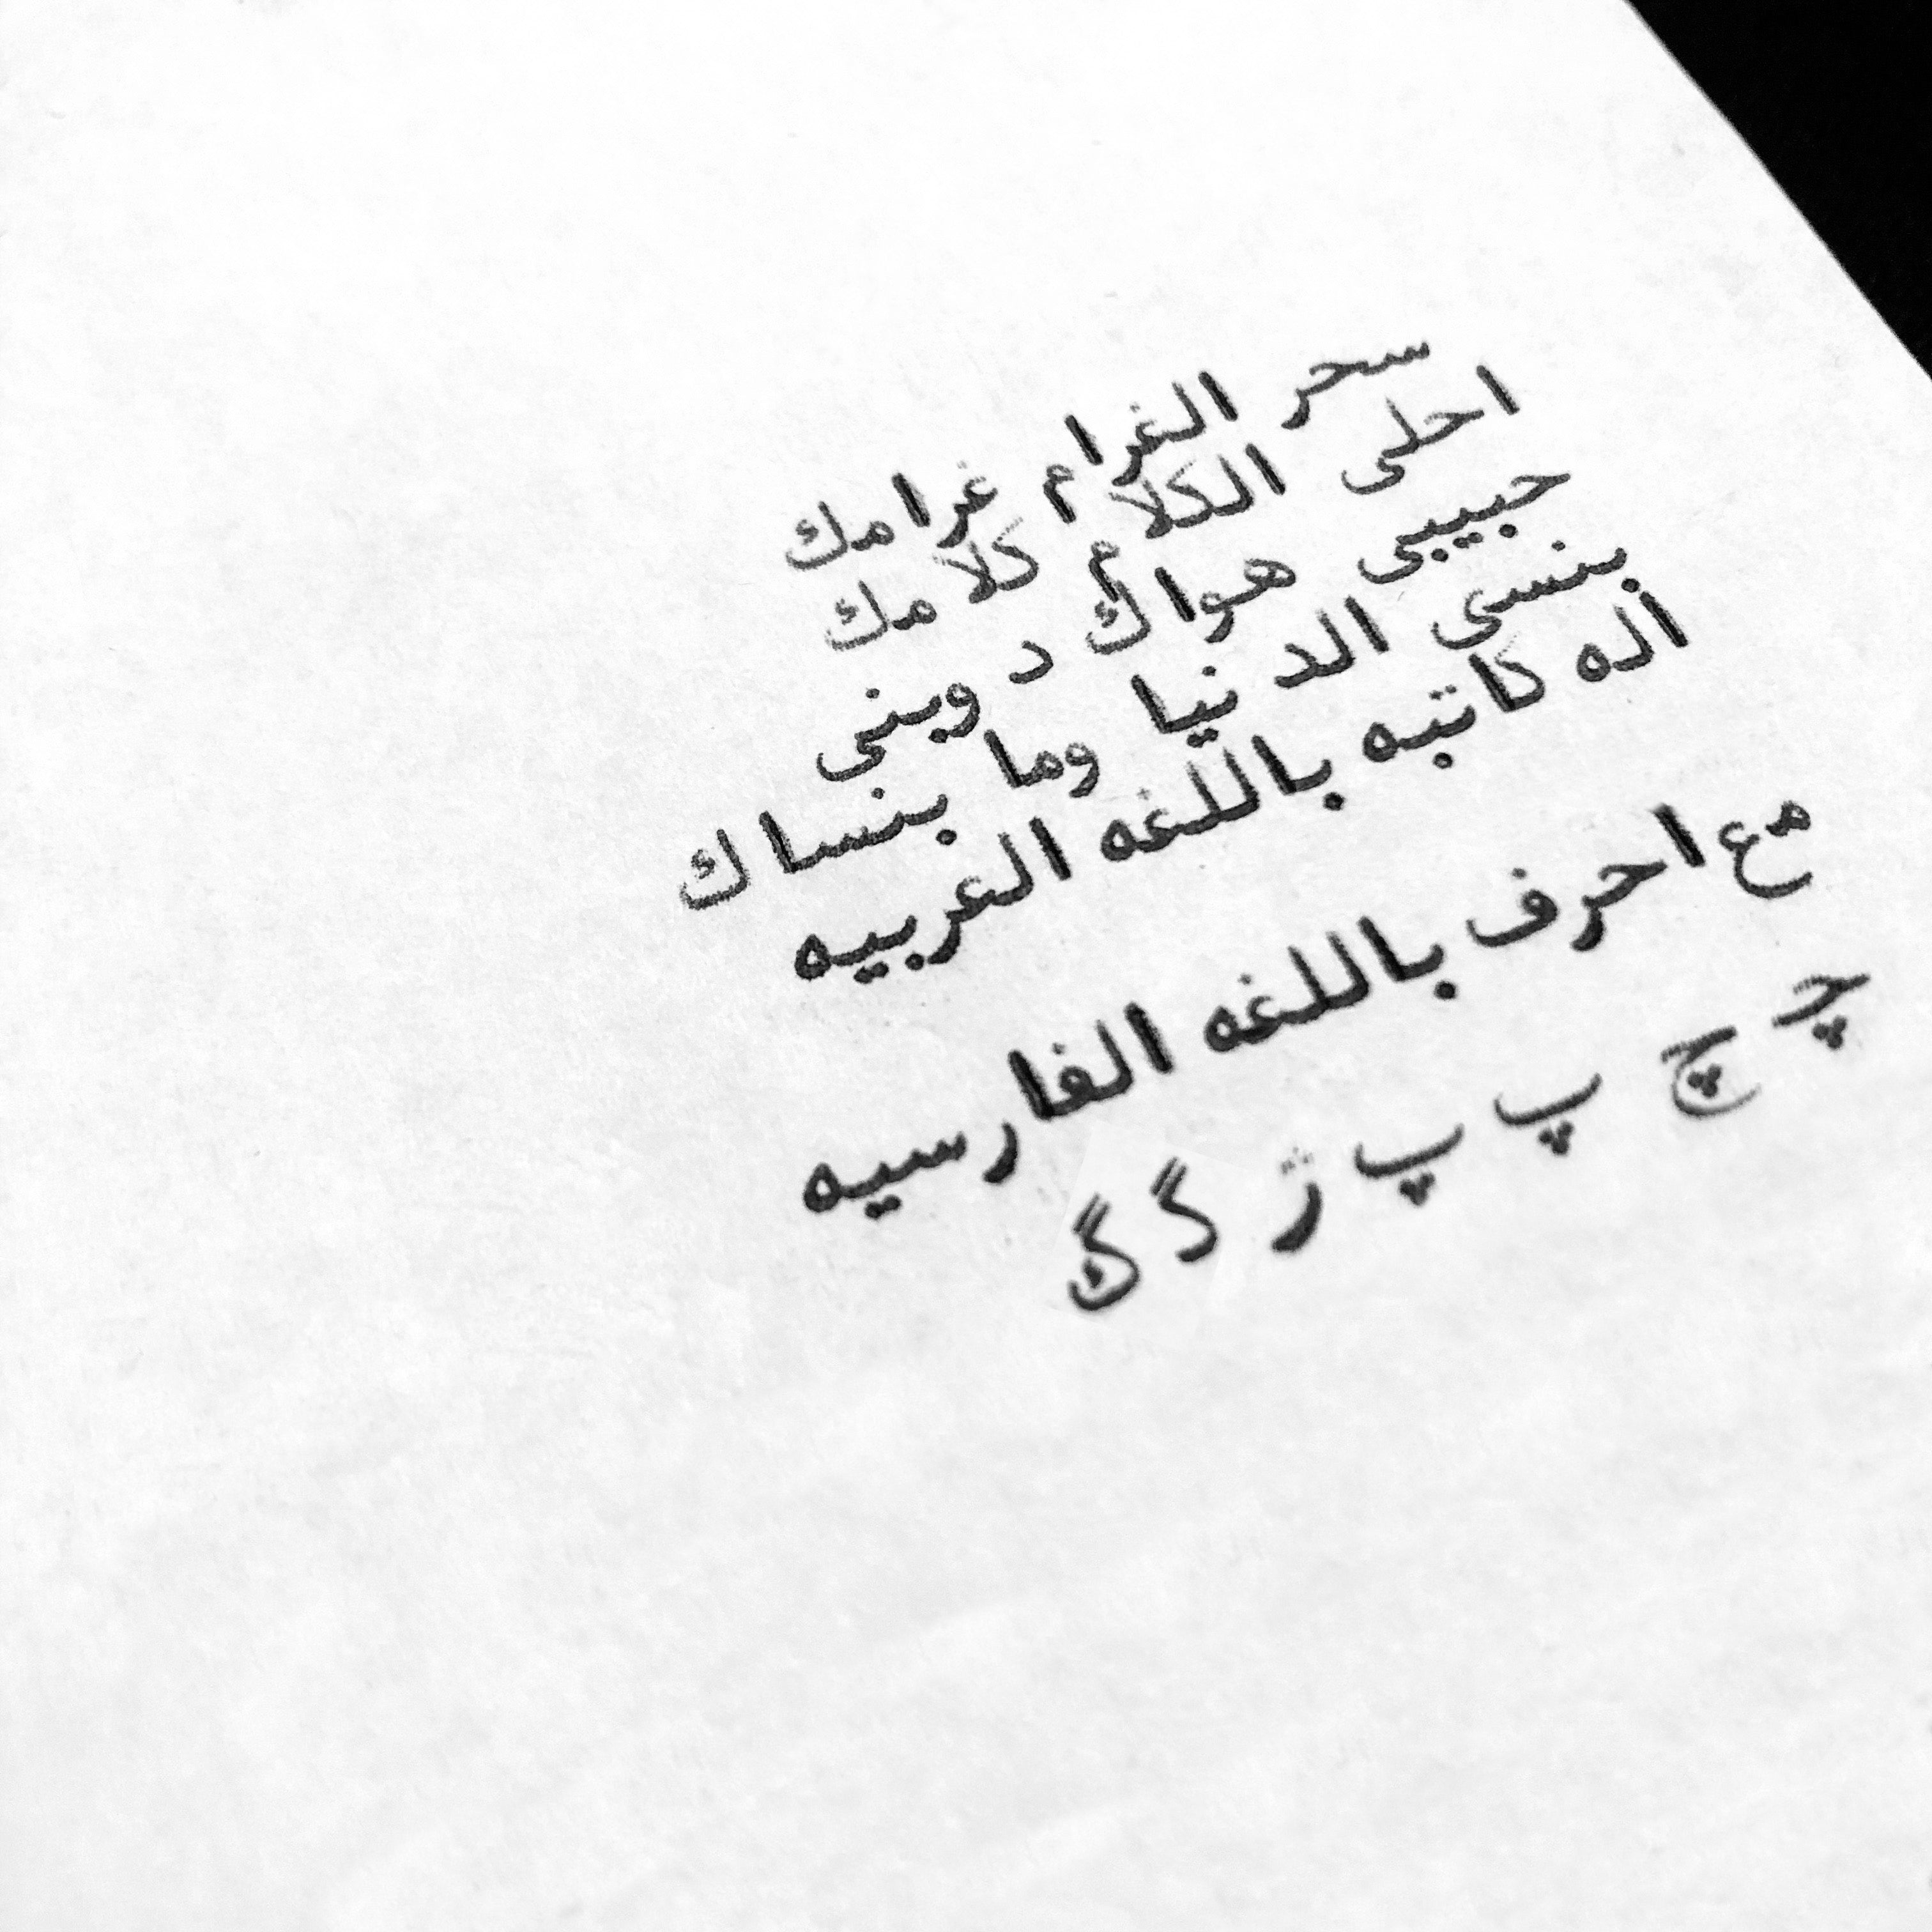 سحر الغرام غرامك
احلى الكلام كلامك
حبيبى هواك دوبنى
بنسى الدنيا وما بنساك
اله كاتبه باللغه العربيه
مع احرف باللغه الفارسيه
چ چ پ پ ژ گ گ